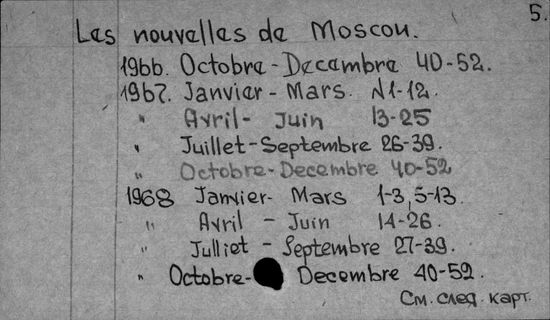 5.
Les nouvelles de Moscou.
1966. Octobre-Decembre 40-52.
1967. Janvier-Mars. N1-12.
" Avril-Juin 13-25
" Juillet-Septembre 26-39.
" Octobre-Decembre 40-52
1968 Janvier-Mars 1-3, 5-13.
" Avril - Juin 14-26.
" Julliet - Septembre 27-39.
" Octobre- Decembre 40-52.
См. след. карт.